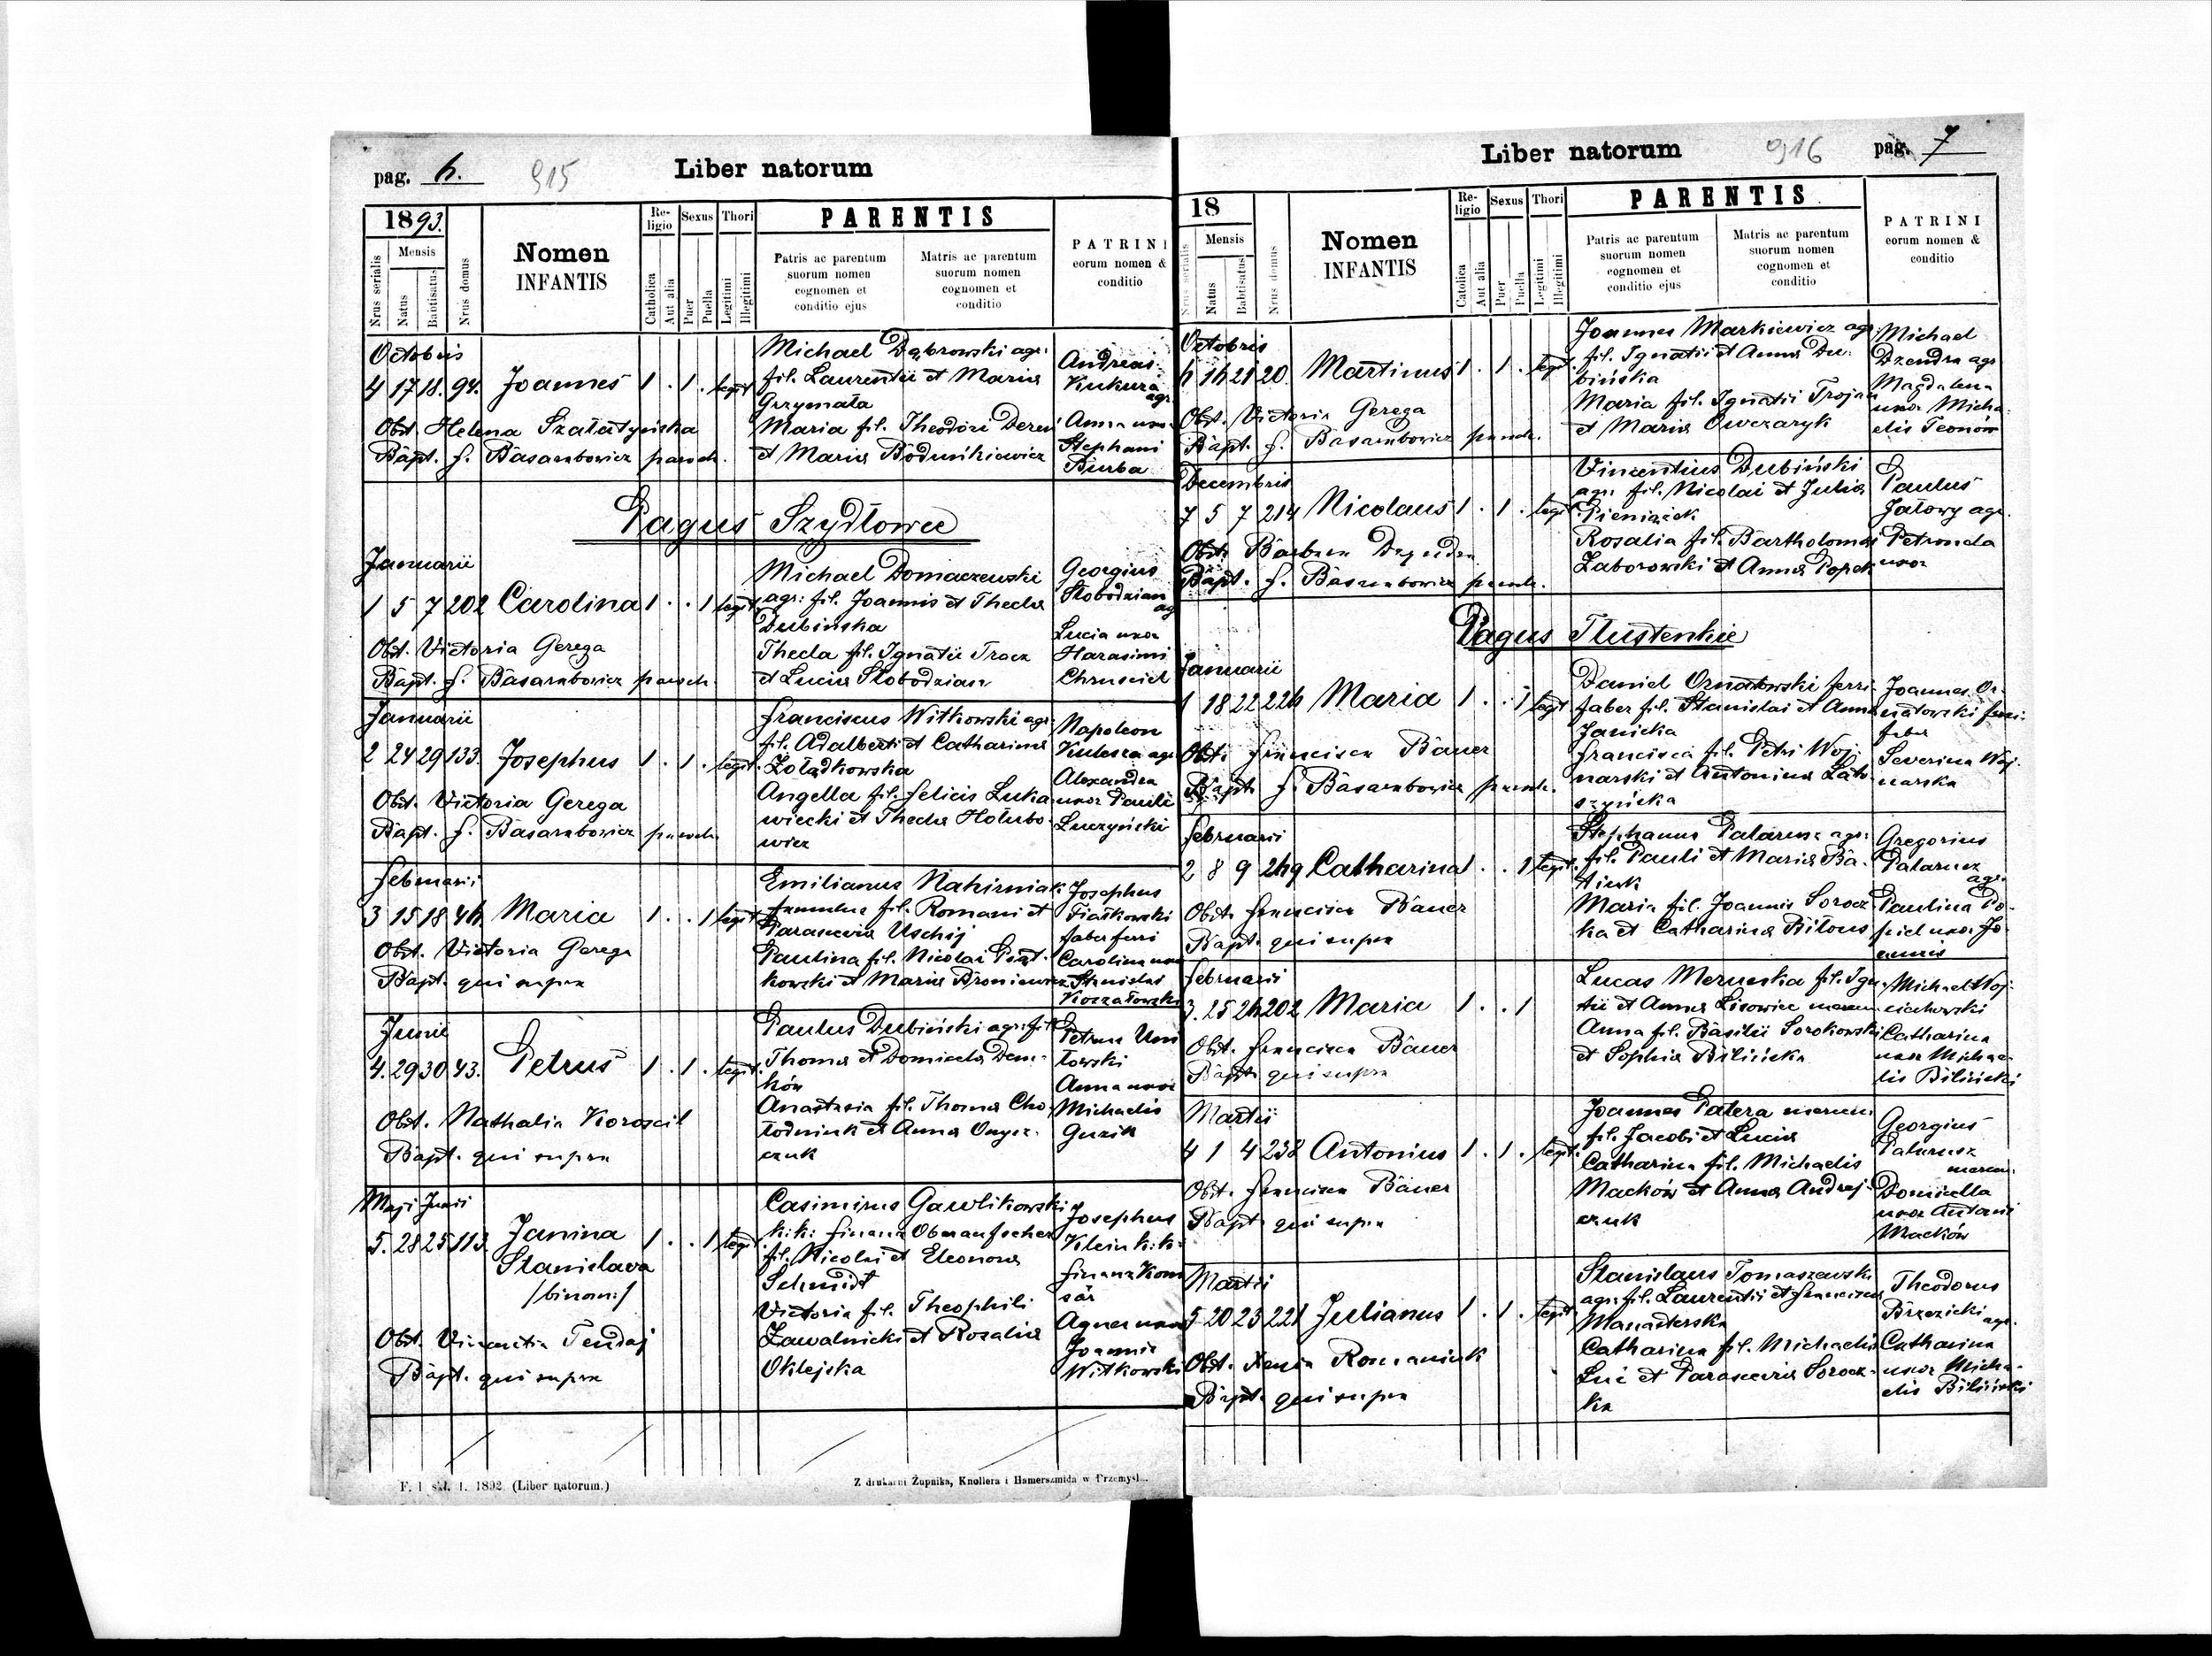 pag. 6.
915
Liber natorum
1893.
Nrus serialis
Mensis
Natus
Babtisatus
Nrus domus
Nomen
INFANTIS
Re-
ligio
Catholica
Aut alia
Sexus
Puer
Puella
Thori
Legitimi
Illegitimi
PARENTIS
Patris ac parentum
suorum nomen
cognomen et
conditio ejus
Matris ac parentum
suorum nomen
cognomen et
conditio
PATRINI
eorum nomen &
conditio
Octobris
4 17 18. 94. Joannes 1 . 1 . legit.
Obst. Helena Szałatyńska
Bapt. f. Basarabowicz paroch.
Michael Dąbrowski agr.
fil. Laurentii et Maria
Grzymała
Maria fil. Theodori
et Maria
Andreas
Kukura
agr.
Anna uxor
Stephani
Burba
Pagus Szydłowce
Januarii
1 5 7 202 Carolina 1 . . 1 legit.
Obst. Victoria Gerega
Bapt. f. Basarabowicz paroch.
Michael Domaczewski
agr: fil. Joannis et Thecla
Dubińska
Thecla fil. Ignatii Tracz
et Lucia Słobodzian
Georgius
Słobodzian
ag
Lucia uxor
Harasimi
Chruściel
Januarii
2 24 29 133. Josephus 1 . 1 . legit.
Obst. Victoria Gerega
Bapt. f. Basarabowicz paroch
Franciscus Witkowski agr.
fil. Adalberti et Catharina
Żołądkowska
Angella fil. Felicis Luka
wiecki et Thecla Hołubo
wicz
Napoleon
Kulesza agr
Alexandra
uxor Pauli
Luczyński
Februarii
3 15 18 46. Maria 1 . . 1 legit
Obst. Victoria Gerega
Bapt. qui supra
Emilianus Nahirniak
famulus fil. Romani et
Parascevia
Paulina fil. Nicolai
kowski et Maria Broniewicz
Josephus
Fiałkowski
faber ferri
Carolina uxor
Stanislai
Junii
4. 29 30 43. Petrus 1 . 1 . legit.
Obst. Nathalia
Bapt. qui supra
Paulus Dubiński agr: fil.
Thoma et Domicela Dem-
ków
Anastasia fil. Thoma Cho
łodniuk et Anna Onysz-
czuk
Petrus
towski
Anna uxor
Michaelis
Guzik
Maji Junii
5. 28 25 113. Janina 1 . . 1 legit.
Stanislava
/binom:/
Obst. Vincentia
Bapt. qui supra
Casimirus Gawlikowski
k: k: Finanz Oberaufseher
fil. Nicolai et Eleonora
Schmidt
Victoria fil. Theophili
Zawalnicki et Rosalia
Oklejska
Josephus
Klein k: k:
Finanz Kom
sär
Agnes uxor
Joannis
Witkowski
F. I skł. 1. 1892. (Liber natorum.)
Z drukarni Żupnika, Knollera i Hamerszmida w Przemyśl...
Liber natorum
916
pag. 7
18
Nrus serialis
Mensis
Natus
Babtisatus
Nrus domus
Nomen
INFANTIS
Re-
ligio
Catolica
Aut alia
Sexus
Puer
Puella
Thori
Legitimi
Illegitimi
PARENTIS
Patris ac parentum
suorum nomen
cognomen et
conditio ejus
Matris ac parentum
suorum nomen
cognomen et
conditio
PATRINI
eorum nomen &
conditio
Octobris
6 16 21 20. Martinus 1 . 1 . legit.
Obst. Victoria Gerega
Bapt. f. Basarabowicz paroch.
Joannes Markiewicz agr.
fil. Ignatii et Anna Du-
bińska
Maria fil. Ignatii Trojan
et Maria Owczaryk
Michael
Dzendra agr
Magdalena
uxor Micha
elis
Decembris
7 5 7 214 Nicolaus 1 . 1 . legit.
Obst. Barbara Dzendra
Bapt. f. Basarabowicz paroch.
Vincentius Dubiński
agr: fil. Nicolai et Julia
Pieniążek
Rosalia fil. Bartholomei
Zaborowski et Anna Popek
Paulus
Jałowy agr.
Petronela
uxor
Pagus Tłustenkie
Januarii
1 18 22 226 Maria 1 . . 1 legit
Obst. Francisca Bauer
Bapt. f. Basarabowicz paroch.
Daniel Ornatowski ferri
faber fil. Stanislai et Anna
Janicka
Francisca fil. Petri Woj-
narski et Antonina
szyńska
Joannes Or-
natowski ferri-
faber
Severina Woj-
narska
Februarii
2 8 9 249 Catharina 1 . . 1 legit.
Obst. Francisca Bauer
Bapt. qui supra
Stephanus Patarusz agr:
fil. Pauli et Maria Ba-
tiuk
Maria fil. Joannis Sorocz
ka et Catharina Biłous
Gregorius
Patarusz
agr.
Paulina
uxor Jo
annis
Februarii
3. 25 26 202 Maria 1 . . 1
Obst. Francisca Bauer
Bapt. qui supra
Lucas fil. Igna
tii et Anna Lisowiec
Anna fil. Basilii Sorokowski
et Sophia Bilińska
Michael Woj-
ciechowski
Catharina
uxor Michae
lis Biliński
Martii
4 1 4 238 Antonius 1 . 1 . legit.
Obst. Francisca Bauer
Bapt qui supra
Joannes Patera mercen:
fil. Jacobi et Lucia
Catharina fil. Michaelis
Macków et Anna Andrej-
czuk
Georgius
Patarusz
mercen.
Domicella
uxor Antoni
Macków
Martii
5 20 23 221 Julianus 1 . 1 . legit.
Obst. Xenia Romaniuk
Bapt. qui supra
Stanislaus Tomaszewski
agr. fil. Laurentii et Francisca
Manasterska
Catharina fil. Michaelis
et Parascevia Sorocz-
ka
Theodorus
Brzezicki agr.
Catharina
uxor Micha-
elis Biliński